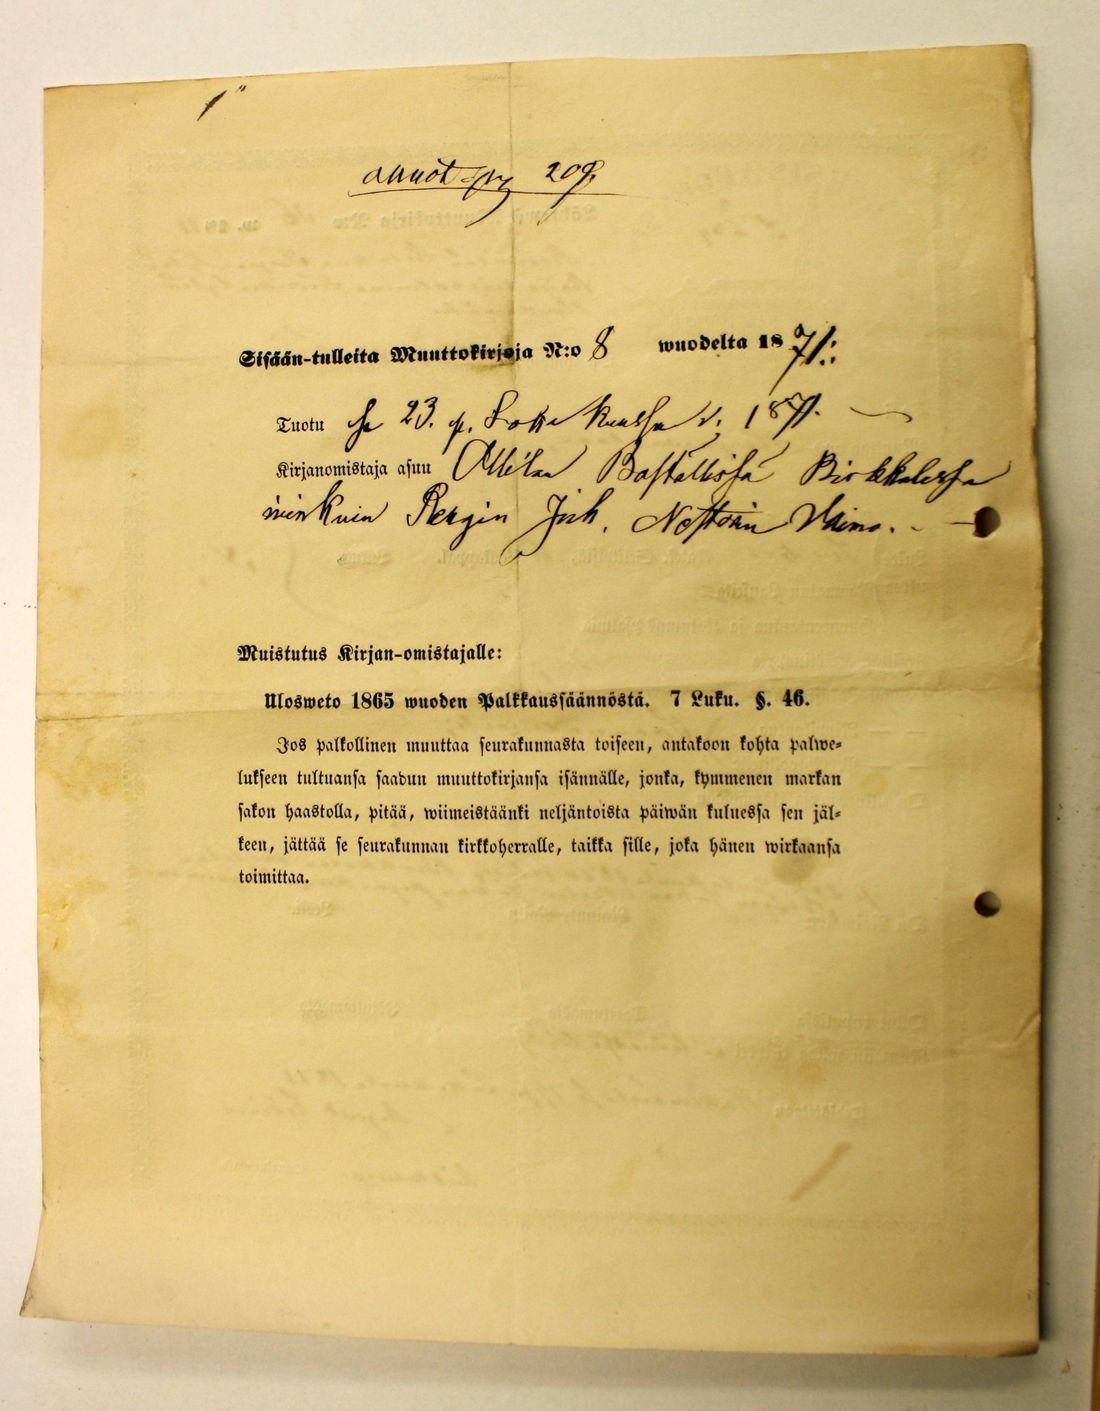 209.
Sisään-tulleita Muuttokirjoja N:o 8 wuodelta 1871:
Tuotu se 23. p. Lokakuussa v. 1871.
Kirjanomistaja asuu Ollilan Boställissä Birkkalassa
niinkuin Nestorin Vaimo.
Muistutus Kirjan-omistajalle:
Ulosweto 1865 wuoden Palkkaussäännöstä. 7 Luku. §. 46.
Jos palkollinen muuttaa seurakunnasta toiseen, antakoon kohta palwe-
lukseen tultuansa saadun muuttokirjansa isännälle, jonka, kymmenen markan
sakon haastolla, pitää, wiimeistäänki neljäntoista päiwän kuluessa sen jäl-
keen, jättää se seurakunnan kirkkoherralle, taikka sille, joka hänen wirkaansa
toimittaa.